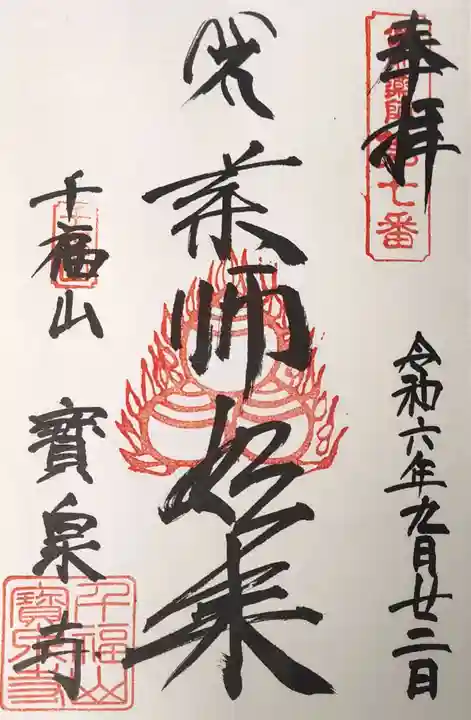 奉拝
七番
令和六年九月廿二日
薬師如来
千福山 寳泉寺
千福山
寳泉寺